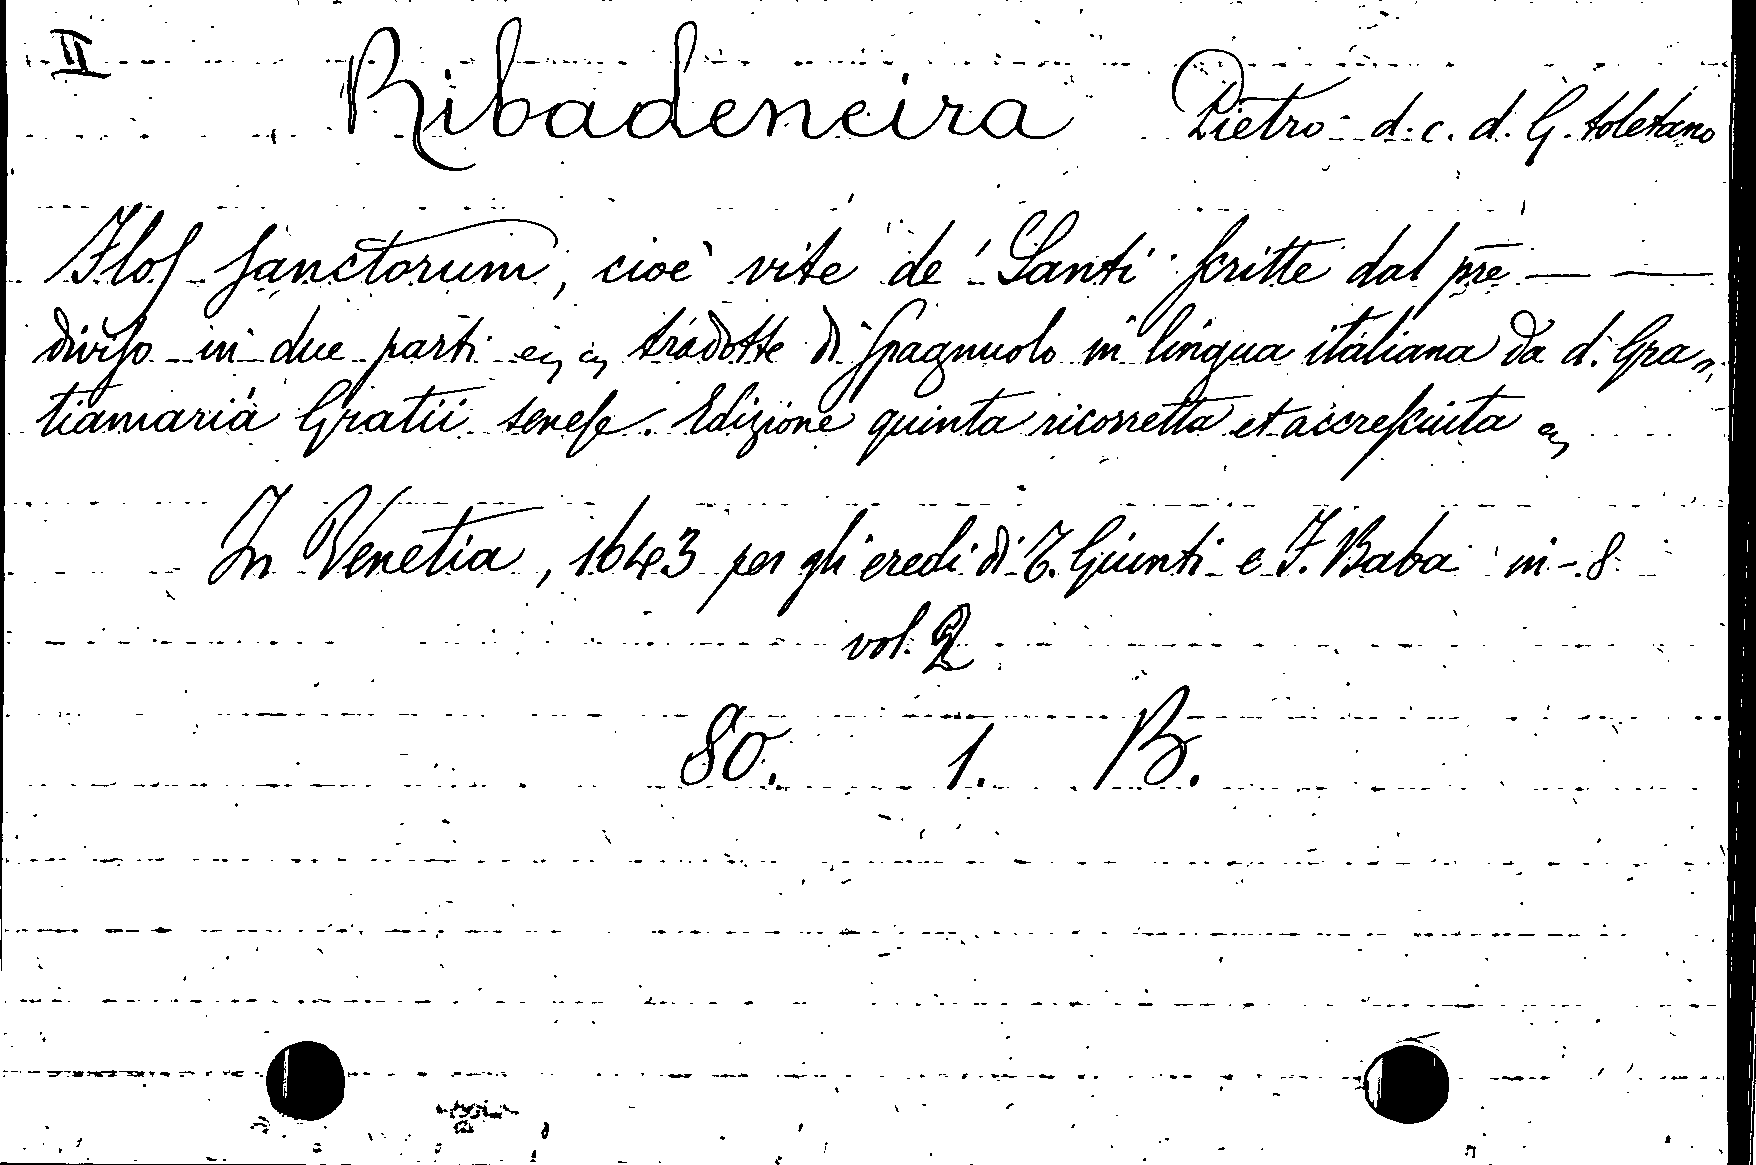 II Ribadeneira Pietro d. c. d. G. toletano
Flos sanctorum, cioè vite de' Santi scritte dal pre — —
diviso in due parti &, &, tradotte di spagnuolo in lingua italiana da d. Gra-
tiamaria Gratii senese. Edizione quinta ricorretta et accresciuta &,
In Venetia, 1643 per gli eredi di T. Giunti e F. Baba in-8
vol. 2
80. 1. B.